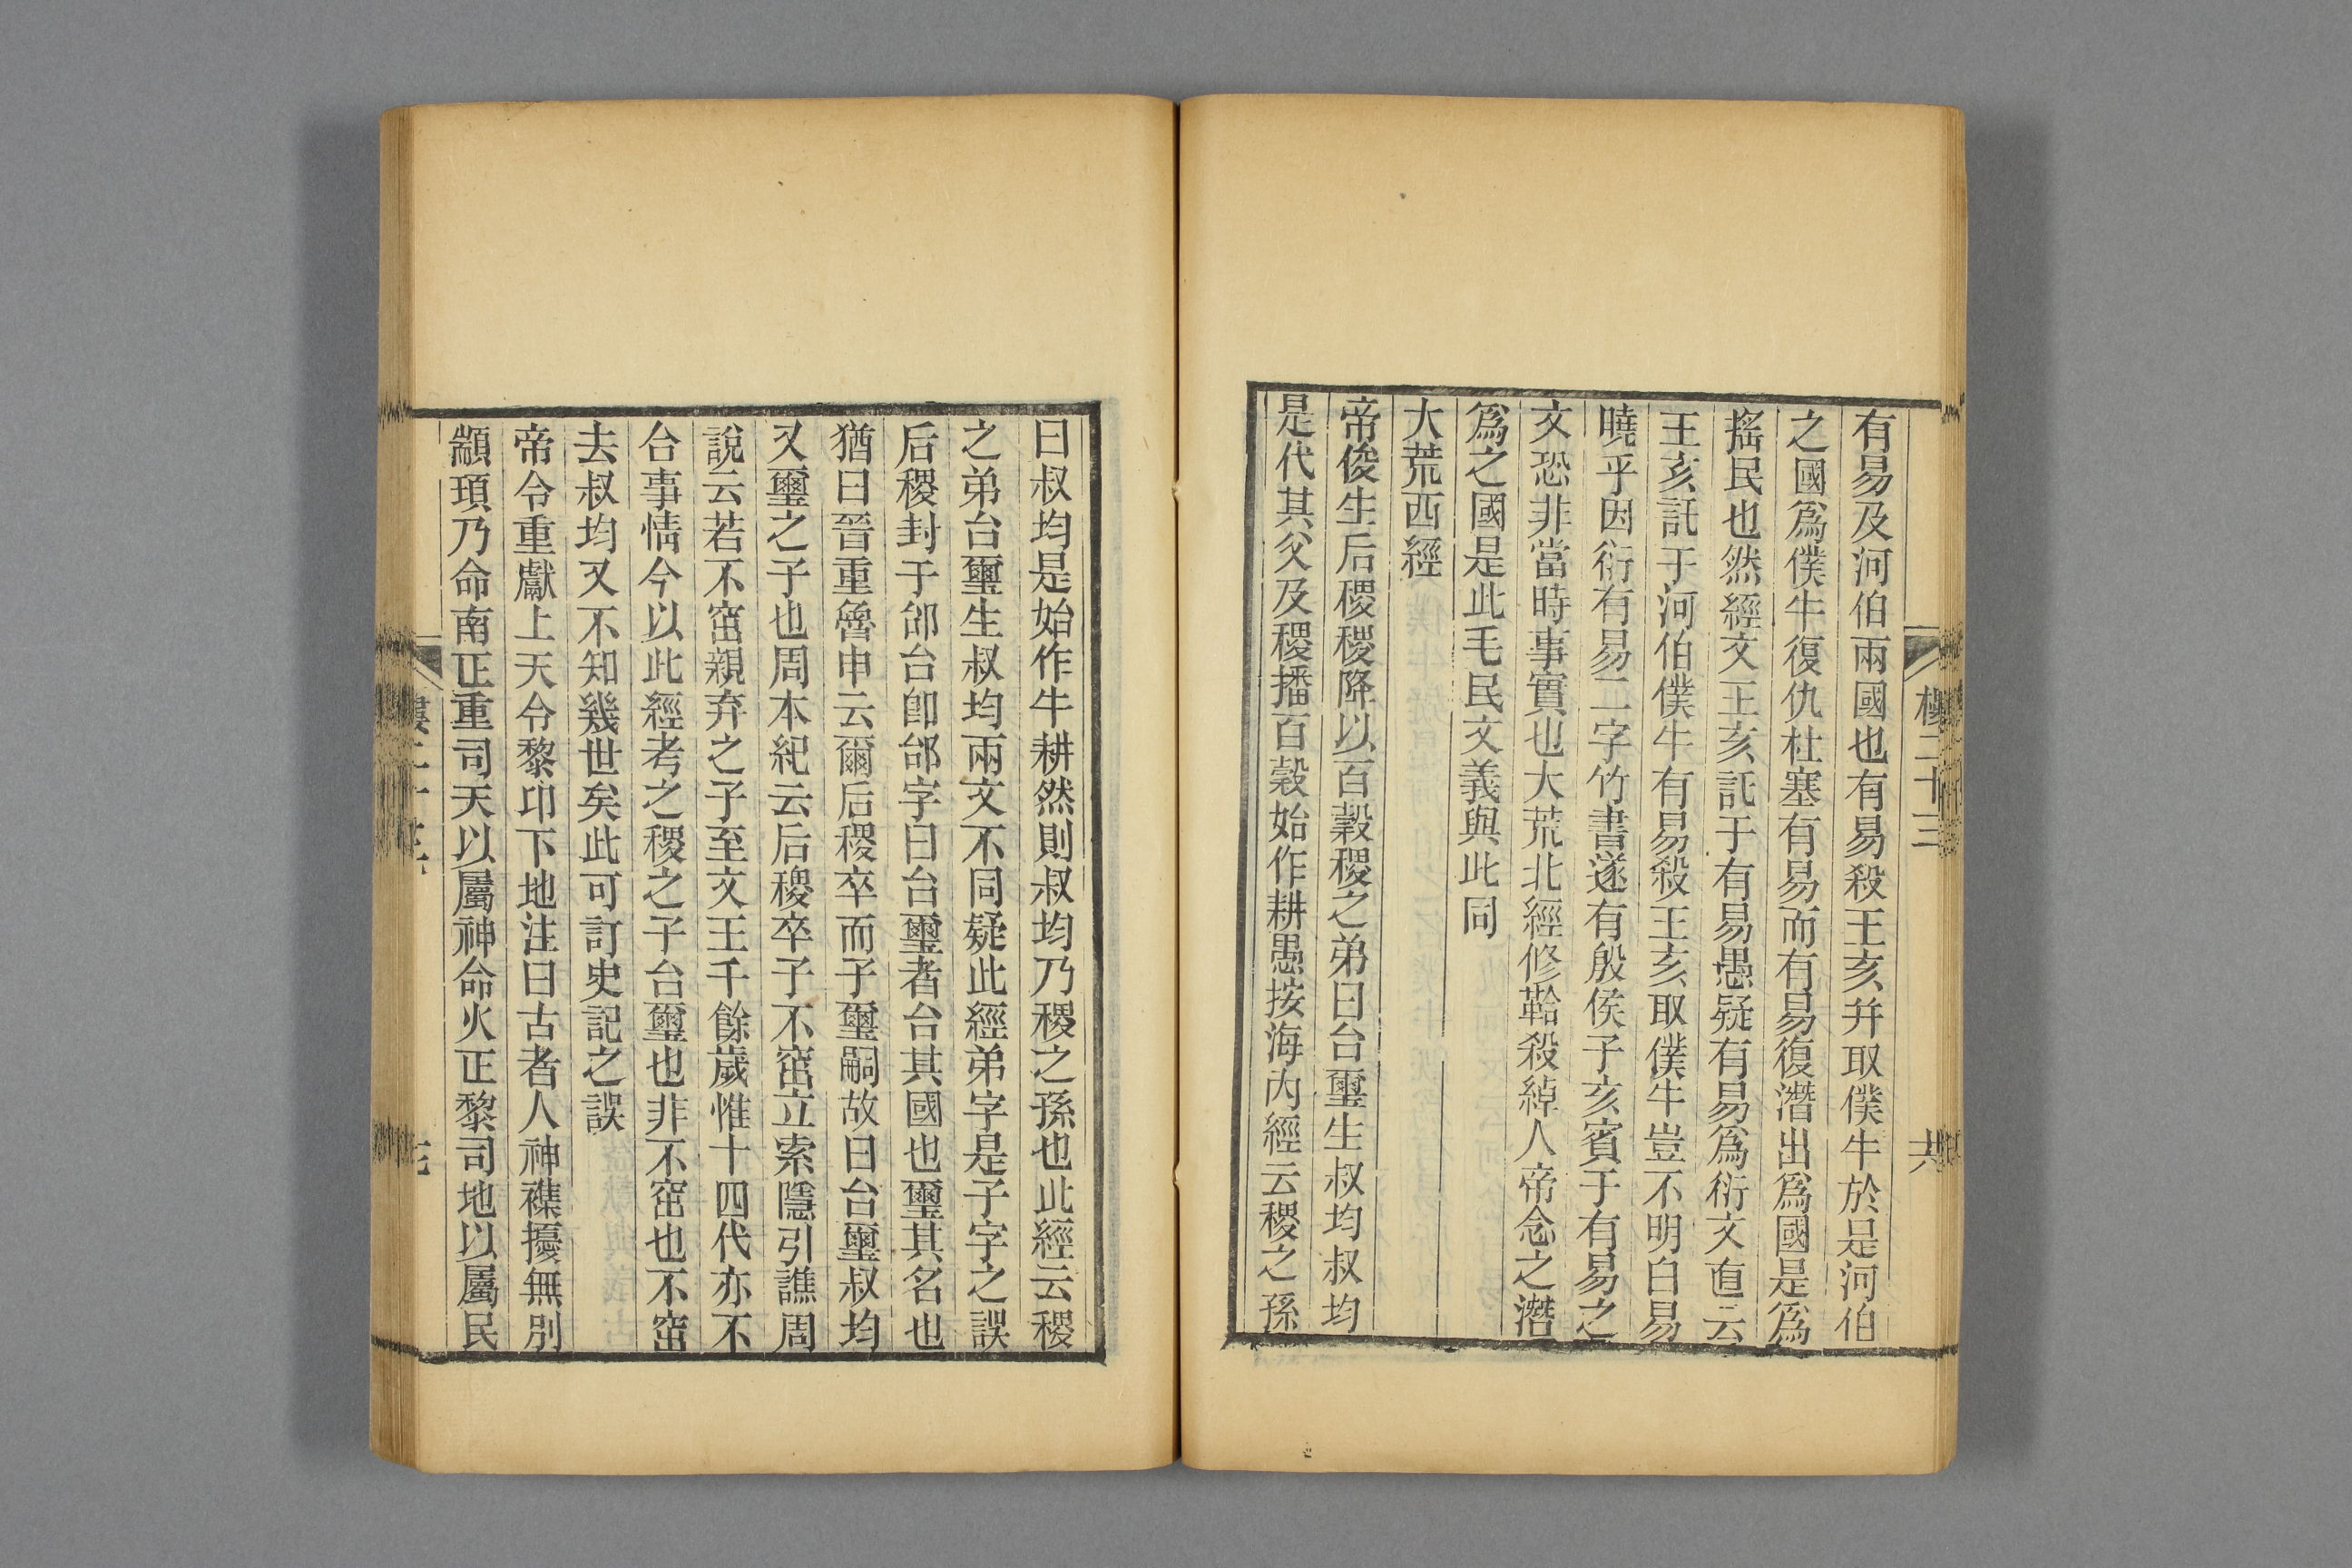 有易及河伯兩國也有易殺王亥幷取僕牛於是河伯
之國爲僕牛復仇杜塞有易而有易復潛出爲國是爲
搖民也然經文王亥託于有易愚疑有易爲衍文直云
王亥託于河伯僕牛有易殺王亥取僕牛豈不明白易
曉乎因衍有易二字竹書遂有殷侯子亥賓于有易之
文恐非當時事實也大荒北經修鞈殺綽人帝念之潛
爲之國是此毛民文義與此同
大荒西經
帝俊生后稷稷降以百穀稷之弟曰台璽生叔均叔均
是代其父及稷播百穀始作耕愚按海內經云稷之孫
曰叔均是始作牛耕然則叔均乃稷之孫也此經云稷
之弟台璽生叔均兩文不同疑此經弟字是子字之誤
后稷封于邰台卽邰字曰台璽者台其國也璽其名也
猶曰晉重魯申云爾后稷卒而子璽嗣故曰台璽叔均
又璽之子也周本紀云后稷卒子不窋立索隱引譙周
說云若不窋親弃之子至文王千餘歲惟十四代亦不
合事情今以此經考之稷之子台璽也非不窋也不窋
去叔均又不知幾世矣此可訂史記之誤
帝令重獻上天令黎卬下地注曰古者人神襍擾無別
顓頊乃命南正重司天以屬神命火正黎司地以屬民